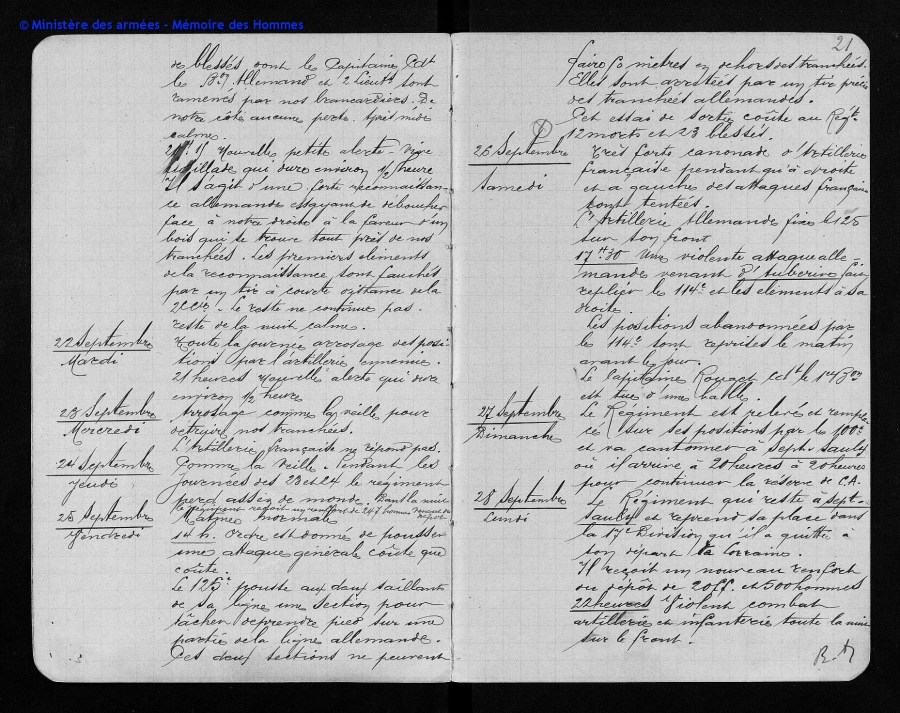 © Ministère des armées - Mémoire des Hommes
de blessés dont le Capitaine Cdt
le Bon Allemand et 2 Lieutts sont
ramenés par nos brancardiers. De
notre côté aucune perte. Après midi
calme.
21h. Nouvelle petite alerte. Vive
fusillade qui dure environ 1/2 heure
Il s'agit d'une forte reconnaissan-
ce allemande essayant de déboucher
face à notre droite à la faveur d'un
bois qui se trouve tout près de nos
tranchées. Les premiers éléments
de la reconnaissance sont fauchés
par un tir à courte distance de la
2e Cie. Le reste ne continue pas.
reste de la nuit calme.
22 Septembre
Mardi
Toute la journée arrosage des posi-
tions par l'artillerie ennemie.
21 heures Nouvelle alerte qui dure
environ 1/2 heure
23 Septembre
Mercredi
Arrosage comme la veille pour
détruire nos tranchées.
L'Artillerie française ne répond pas.
24 Septembre
Jeudi
Comme la veille. Pendant les
journées des 23 et 24 le régiment
perd assez de monde. Dans la nuit
le régiment reçoit un renfort de 247 hommes venant du dépôt
25 Septembre
Vendredi
Matinée normale
14 h. Ordre est donné de pousser
une attaque générale coûte que
coûte.
Le 125e pousse aux deux saillants
de sa ligne une section pour
tâcher de prendre pied sur une
partie de la ligne allemande.
Ces deux sections ne peuvent
21
faire 50 mètres en dehors des tranchées.
Elles sont arrêtées par un tir précis
des tranchées allemandes.
Cet essai de sortie coûte au Régt
12 morts et 23 blessés.
26 Septembre
Samedi
Très forte canonade d'Artillerie
française pendant qu'à droite
et à gauche des attaques françaises
sont tentées.
L'Artillerie Allemande fixe le 125
sur son front
17h30 Une violente attaque alle-
mande venant d'Auberive fait
replier le 114e et les éléments à sa
droite.
Les positions abandonnées par
le 114e sont reprises le matin
avant le jour.
Le Capitaine Rouget Cdt le 1er Bon
est tué d'une balle.
27 Septembre
Dimanche
Le Régiment est relevé et rempla-
cé sur ses positions par le 100e
et va cantonner à Sept-Saulx
où il arrive à 20 heures à 20 heures
pour continuer la réserve de CA.
28 Septembre
Lundi
Le Régiment qui reste à Sept-
Saulx et reprend sa place dans
la 17e Division qu'il a quittée à
son départ de la Lorraine.
Il reçoit un nouveau renfort
du dépôt de 2 Off. et 500 hommes
22 heures Violent combat
artillerie et infanterie toute la nuit
sur le front.